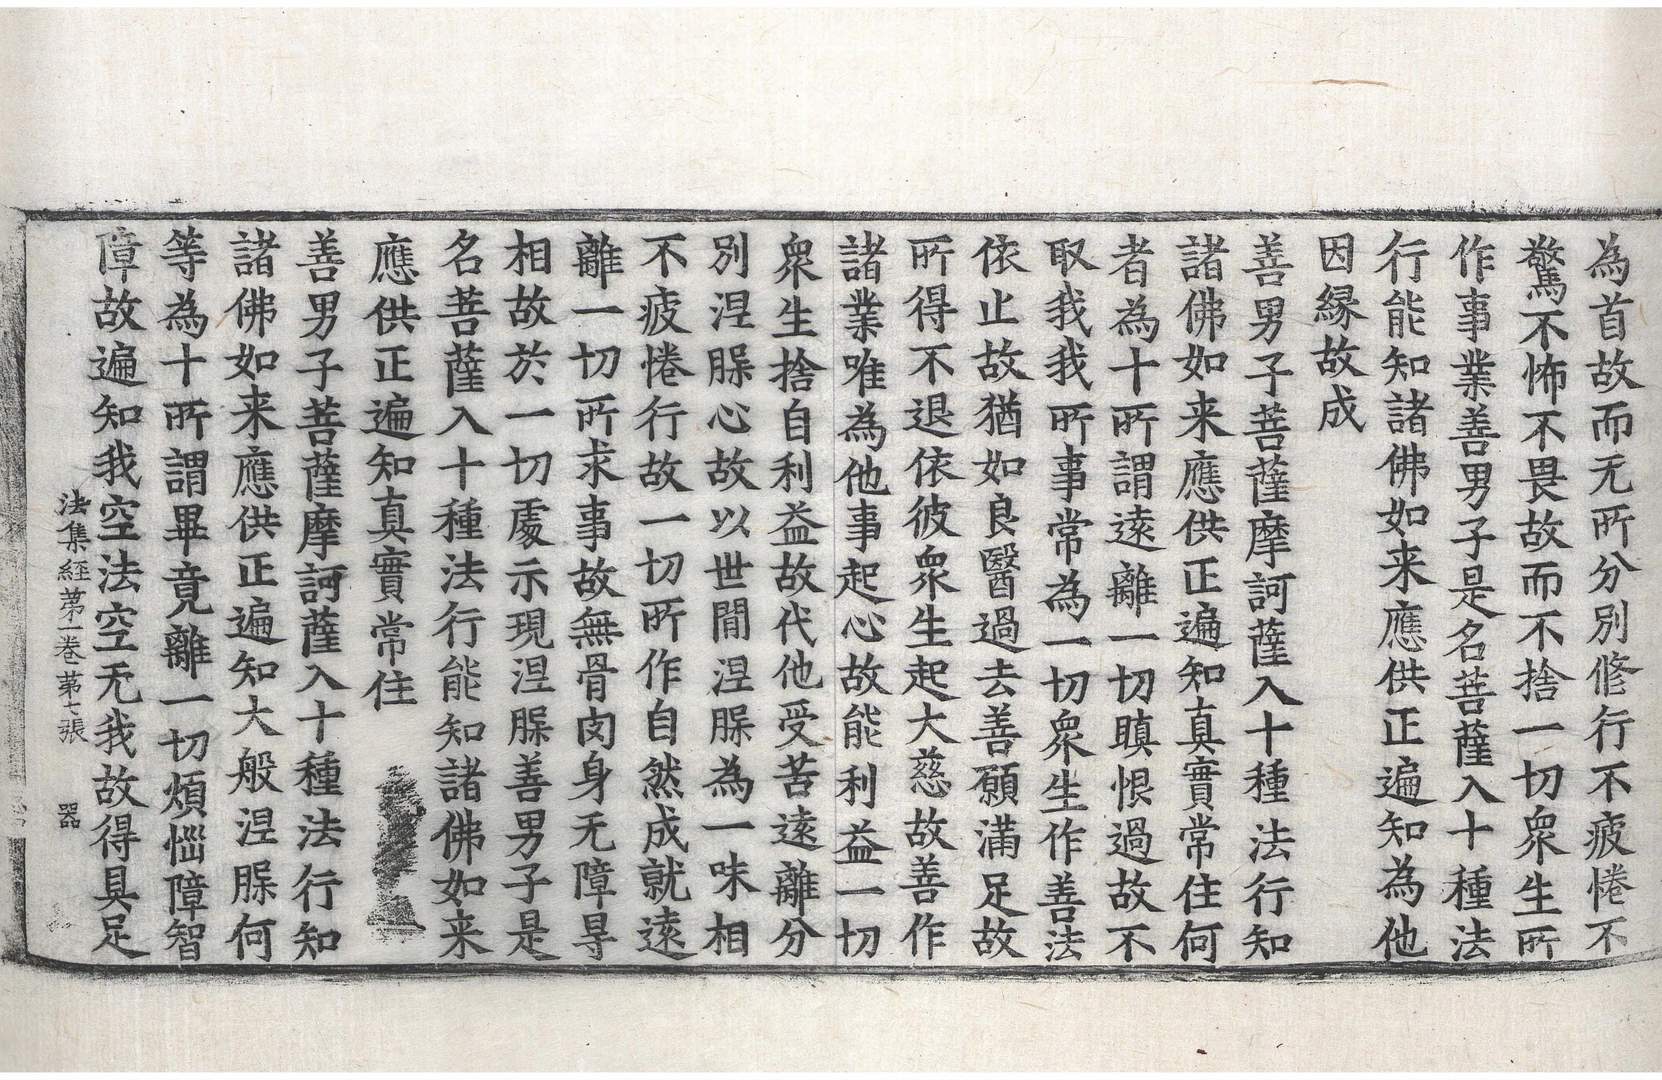 為首故而无所分別修行不疲惓不
驚不怖不畏故而不捨一切衆生所
作事業善男子是名菩薩入十種法
行能知諸佛如来應供正遍知為他
因縁故成
善男子菩薩摩訶薩入十種法行知
諸佛如来應供正遍知真實常住何
者為十所謂遠離一切瞋恨過故不
取我我所事常為一切衆生作善法
依止故猶如良醫過去善願滿足故
所得不退依彼衆生起大慈故善作
諸業唯為他事起心故能利益一切
衆生捨自利益故代他受苦遠離分
別涅槃心故以世間涅槃為一味相
不疲惓行故一切所作自然成就遠
離一切所求事故無骨肉身无障㝵
相故於一切處示現涅槃善男子是
名菩薩入十種法行能知諸佛如来
應供正遍知真實常住
善男子菩薩摩訶薩入十種法行知
諸佛如来應供正遍知大般涅槃何
等為十所謂畢竟離一切煩惱障智
障故遍知我空法空无我故得具足
法集經第一卷 第七張 器